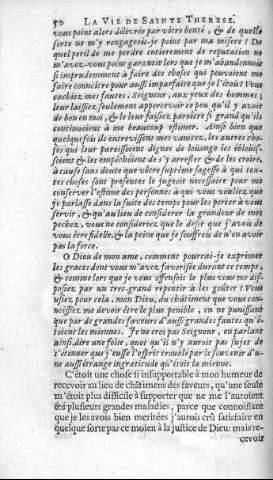 50 LA VIE DE SAINTE THERESE.
vous point alors délivrée par vôtre bonté, & de quelle
sorte ne m'y rengageois-je point par ma misere? De
quel peril de me perdre entierement de reputation ne
m'avez-vous point garantie lors que je m'abandonnois
si imprudemment à faire des choses qui pouvoient me
faire connoître pour aussi imparfaite que je l'étois! Vous
cachiez mes fautes, Seigneur, aux yeux des hommes;
leur laissiez seulement appercevoir ce peu qu'il y avoit
de bon en moi, & le leur faisiez paroître si grand qu'ils
continuoient à me beaucoup estimer. Ainsi bien que
quelquefois ils entrevissent mes vanitez, les autres cho-
ses qui leur paroissoient dignes de loüange les ébloüis-
soient & les empêchoient de s'y arrester & de les croire,
à cause sans doute que vôtre suprême sagesse à qui tou-
tes choses sont presentes le jugeoit necessaire pour me
conserver l'estime des personnes à qui vous vouliez que
je parlasse dans la suite des temps pour les porter à vous
servir, & qu'au lieu de considerer la grandeur de mes
pechez, vous ne consideriez que le desir que j'avois de
vous être fidelle, & la peine que je souffrois de n'en avoir
pas la force.
O Dieu de mon ame, comment pourrai-je exprimer
les graces dont vous m'avez favorisée durant ce temps,
& comme lors que je vous offensois le plus vous me dis-
posiez par un tres-grand repentir à les goûter? Vous
usiez pour cela, mon Dieu, du châtiment que vous con-
noissiez me devoir être le plus penible, en ne punissant
que par de grandes faveurs d'aussi grandes fautes qu'é-
toient les miennes. Je ne crei pas Seigneur, en parlant
ainsi, dire une folie, quoi qu'il n'y auroit pas sujet de
s'étonner que j'eusse l'esprit troublé par le souvenir d'u-
ne aussi étrange ingratitude qu'étoit la mienne.
C'étoit une chose si insupportable à mon humeur de
recevoir au lieu de châtimens des faveurs, qu'une seule
m'étoit plus difficile à supporter que ne me l'auroient
été plusieurs grandes maladies, parce que connoissant
que je les avois bien meritées j'aurois crû satisfaire en
quelque sorte par ce moien à la justice de Dieu: mais re-
cevoir